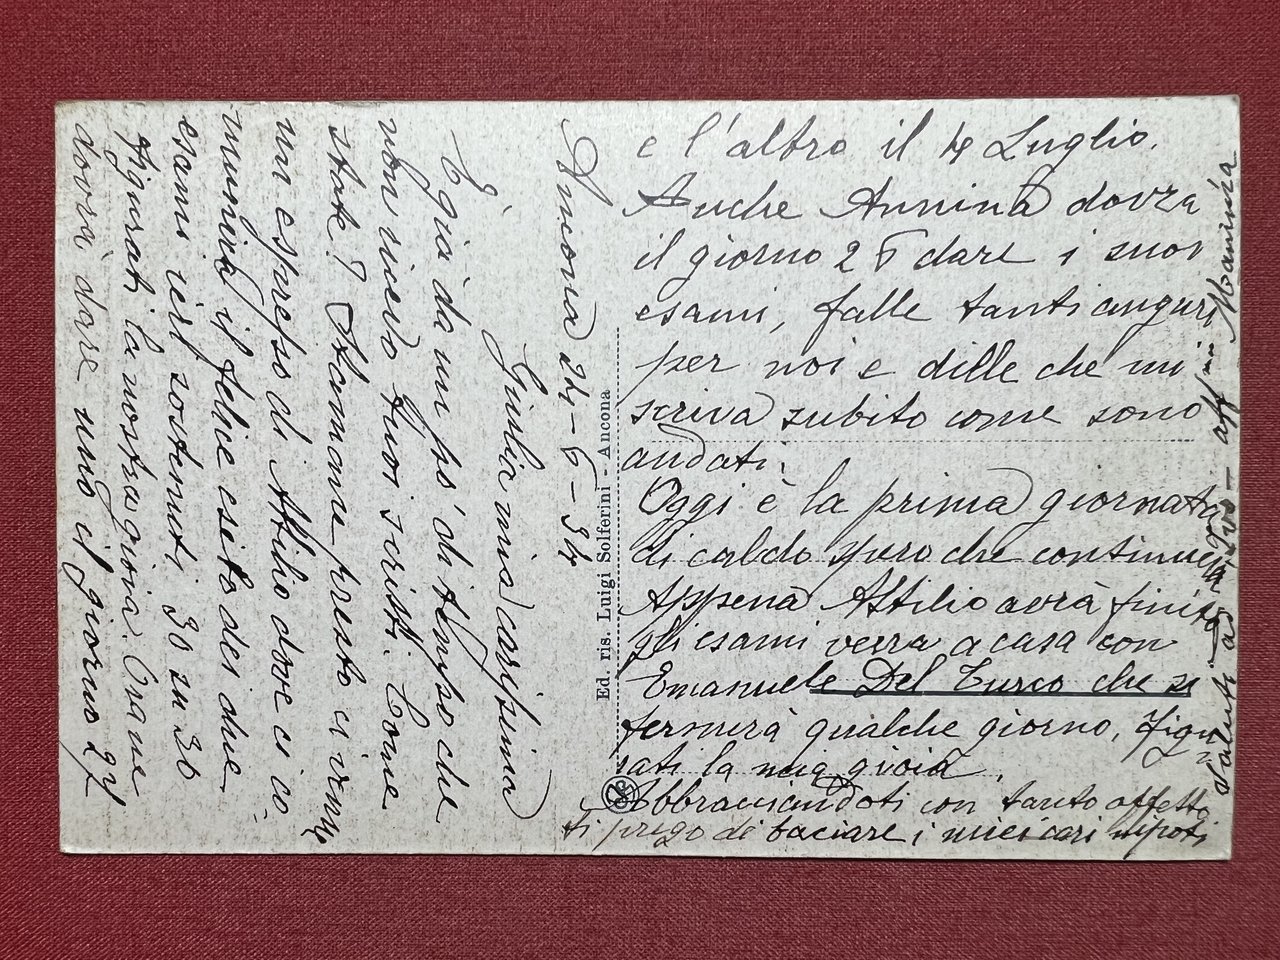 Ancona 24-6-34
Giulia mia carissima
È già da un pò di tempo che
non ricevo tuoi scritti. Come
state? Stamane presto ci venne
un espresso di Attilio dove ci co-
munica il felice esito dei due
esami ieri sostenuti 30 su 30
figurati la nostra gioia. Ora ne
dovrà dare uno il giorno 27
e l'altro il 4 Luglio.
Anche Annina dovrà
il giorno 26 dare i suoi
esami, falle tanti auguri
per noi e dille che mi
scriva subito come sono
andati.
Oggi è la prima giornata
di caldo spero che continuerà
Appena Attilio avrà finito
gli esami verrà a casa con
Emanuele Del Turco che si
fermerà qualche giorno, figu-
rati la mia gioia.
Abbracciandoti con tanto affetto
ti prego di baciare i miei cari nipoti
Saluti ad aff.ma Mammà
Ed. ris. Luigi Solferini - Ancona